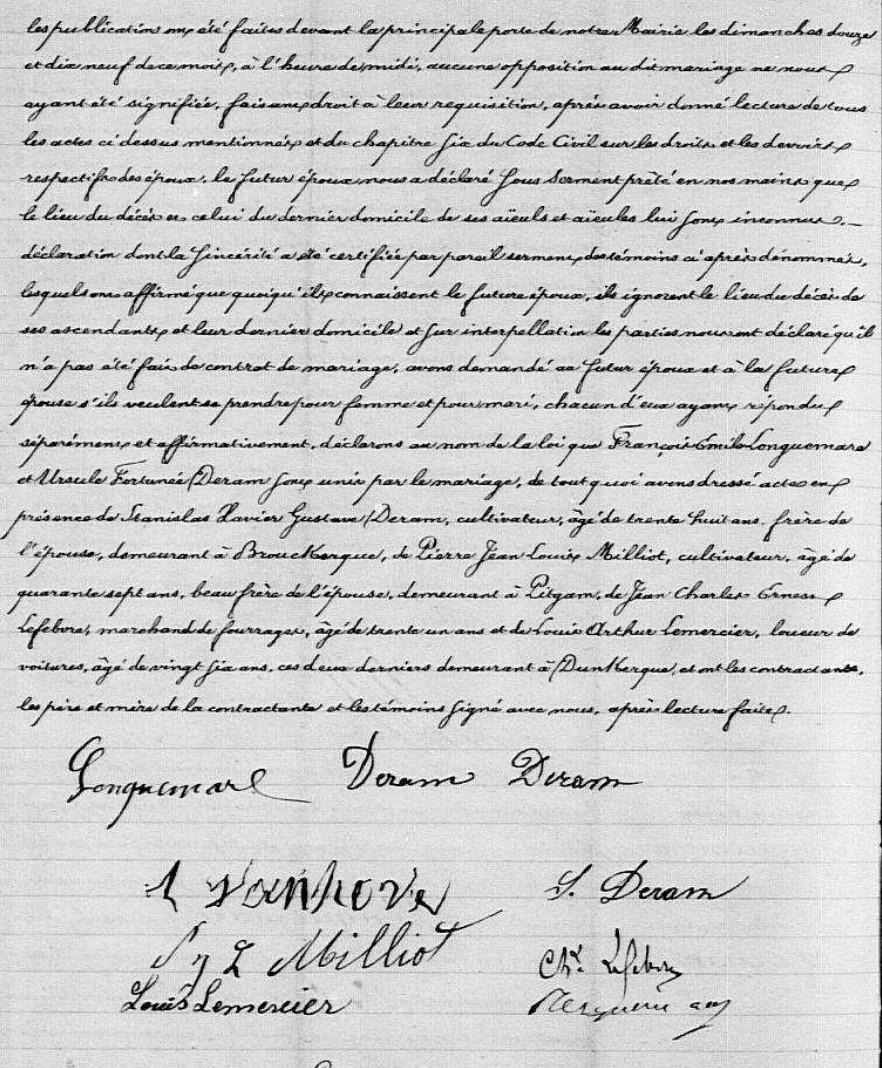 les publication ont été faites devant la principale porte de notre Mairie les dimanches douze
et dix neuf de ce mois, à l'heure de midi, aucune opposition au dit mariage ne nous
ayant été signifiée, faisant droit à leur requisition, après avoir donné lecture de tous
les actes ci dessus mentionnés et du chapitre six du Code Civil sur les droits et les devoirs
respectifs des époux, le futur époux nous a déclaré sous serment prêté en nos mains que
le lieu du décès et celui du dernier domicile de ses aïeuls et aïeules lui sont inconnus,
déclaration dont la sincérité a été certifiée par pareil serment des témoins ci après dénommés,
lesquels ont affirmé que quoiqu'ils connaissent le future époux, ils ignorent le lieu du décès de
ses ascendants et leur dernier domicile et sur interpellation les parties nous ont déclaré qu'il
n'a pas été fait de contrat de mariage, avons demandé au futur époux et à la future
épouse s'ils veulent se prendre pour femme et pour mari, chacun d'eux ayant répondu
séparément et affirmativement, déclarons au nom de la loi que François Emile Longuemare
et Ursule Fortunée Deram sont unis par le mariage, de tout quoi avons dressé acte en
présence de Stanislas Xavier Gustave Deram, cultivateur, âgé de trente huit ans, frère de
l'épouse, demeurant à Brouckerque, de Pierre Jean Louis Milliot, cultivateur, âgé de
quarante sept ans, beau frère de l'épouse, demeurant à Pitgam, de Jean Charles Ernest
Lefebvre, marchand de fourrages, âgé de trente un ans et de Louis Arthur Lemercier, loueur de
voitures, âgé de vingt six ans, ces deux derniers demeurant à Dunkerque, et ont les contractants,
les père et mère de la contractante et les témoins signé avec nous, après lecture faite.
Longuemare Deram Deram
Vanhove S. Deram
Milliot Ch. Lefebvre
Louis Lemercier